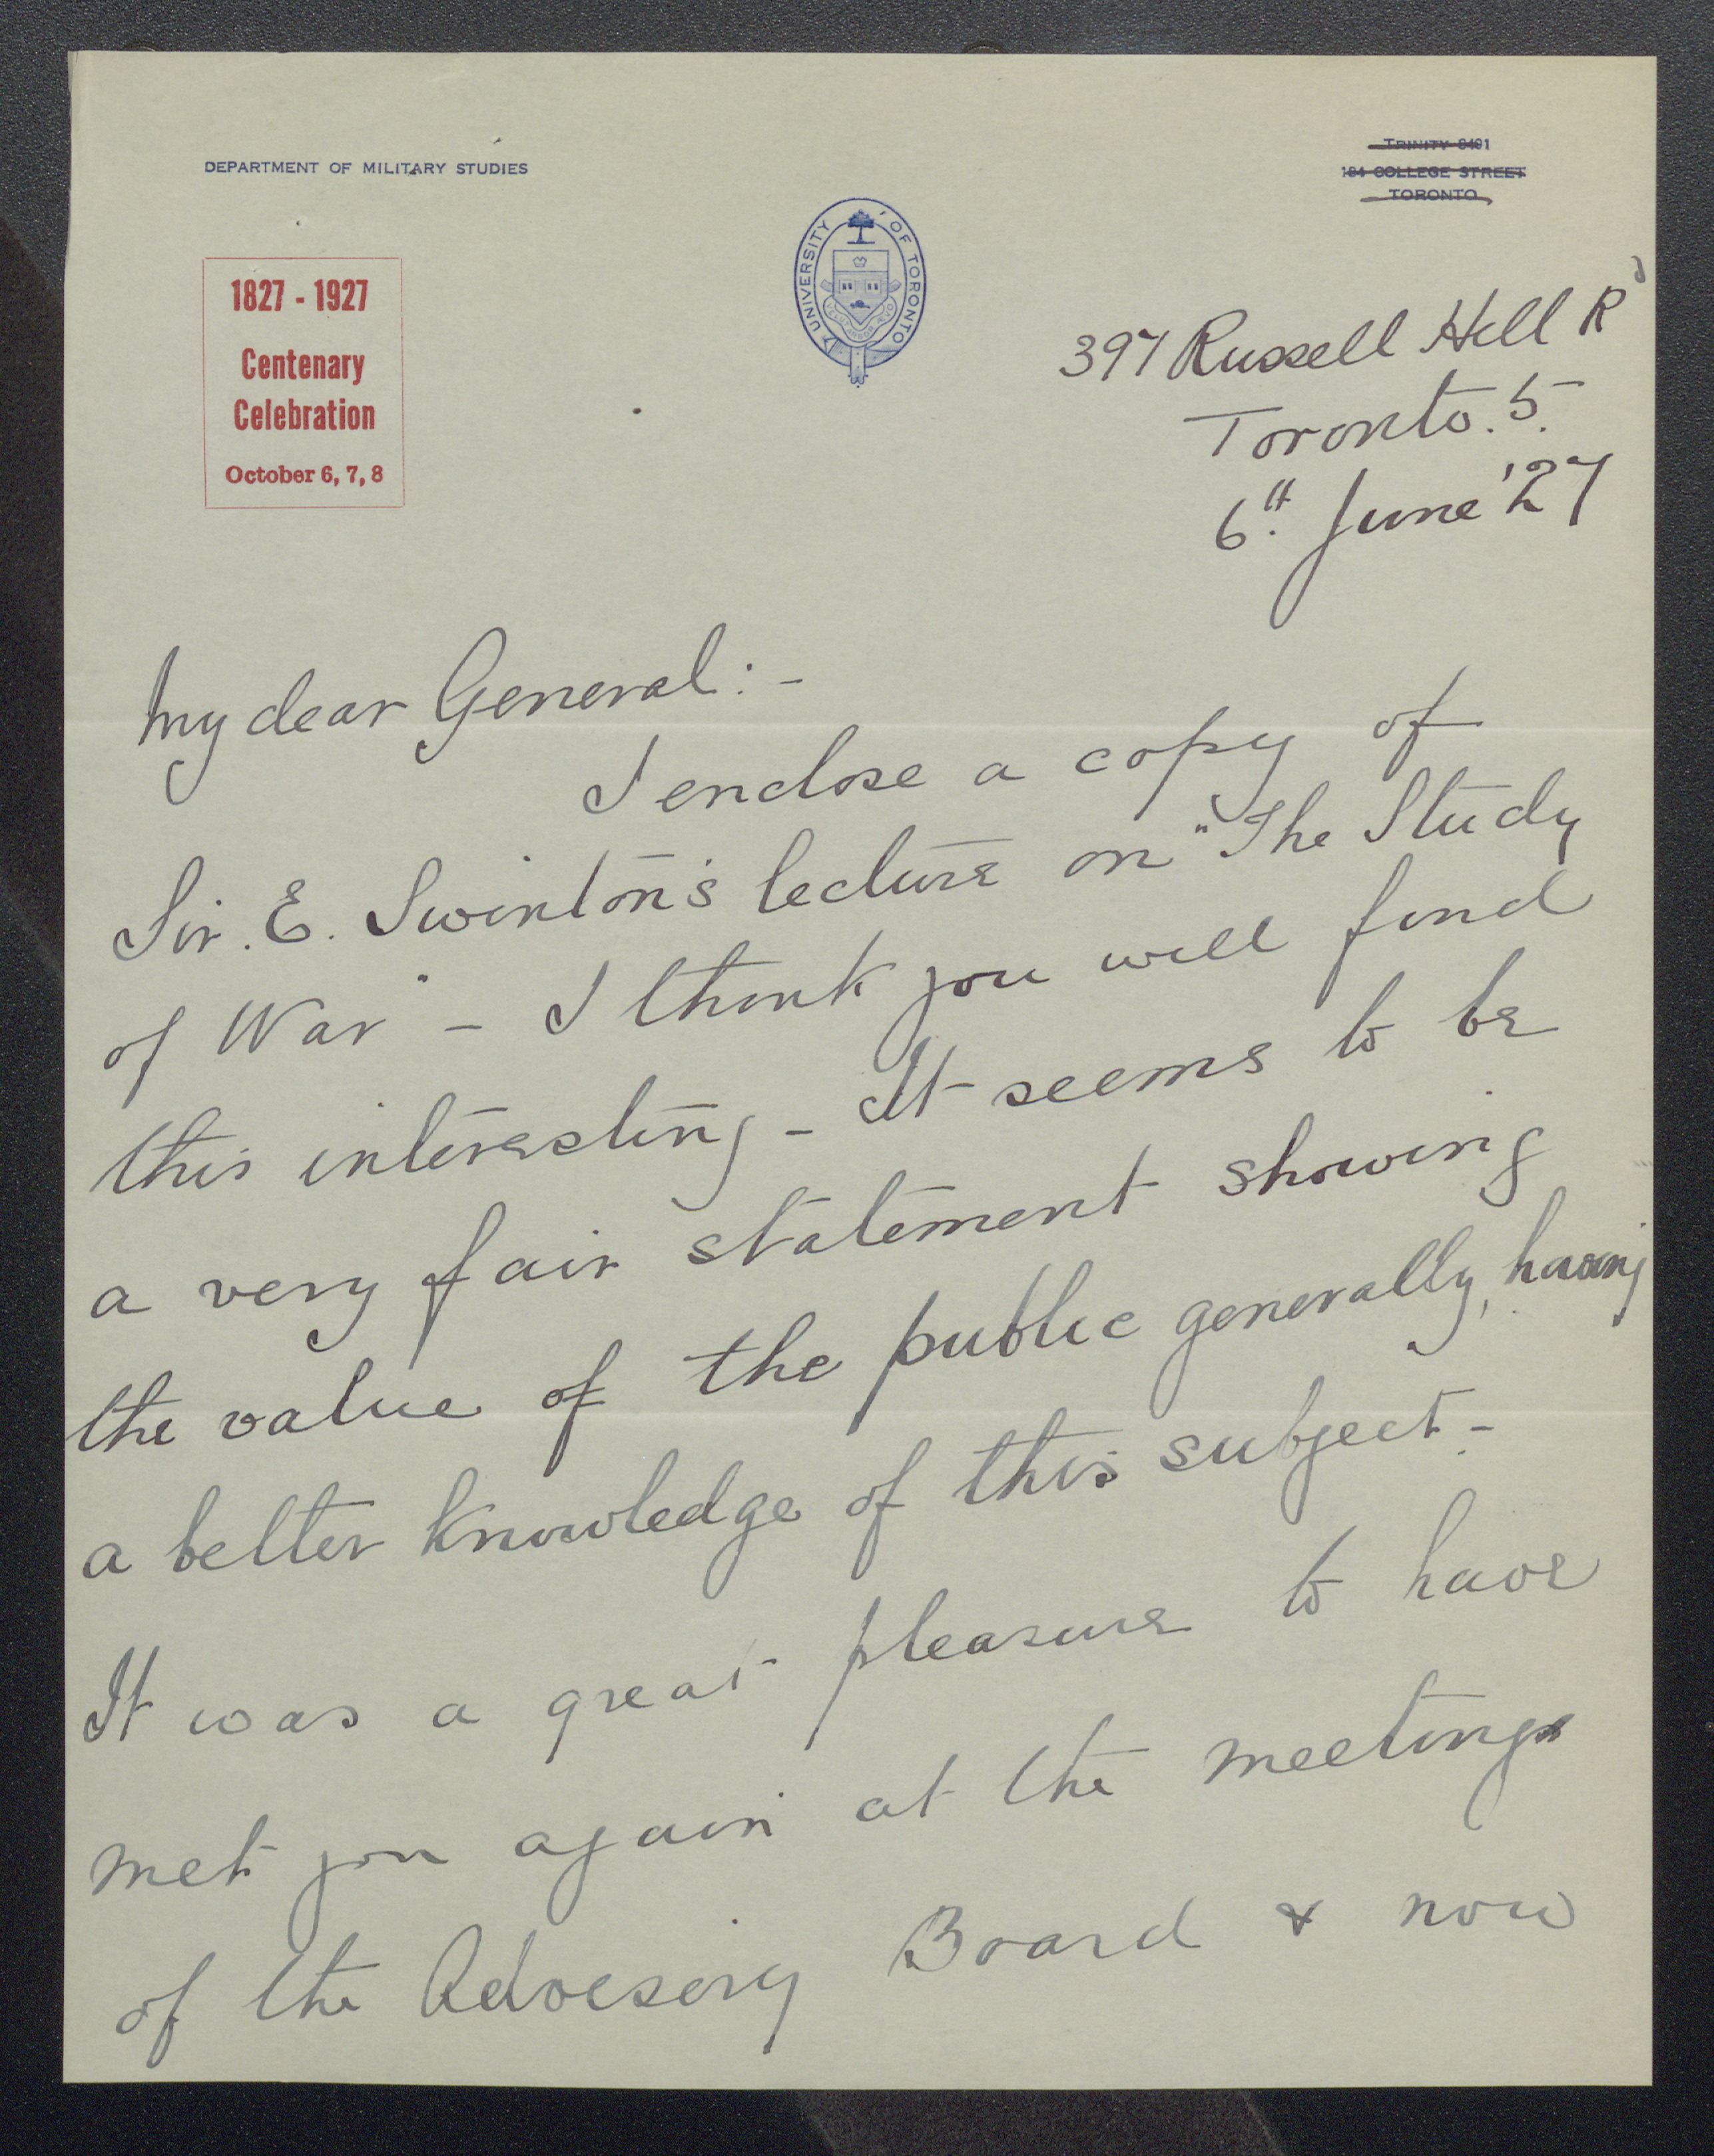 DEPARTMENT OF MILITARY STUDIES
TRINITY 8491
184 COLLEGE STREET
TORONTO
UNIVERSITY OF TORONTO
VELUT ARBOR ÆVO
1827 - 1927
Centenary
Celebration
October 6, 7, 8
397 Russell Hill Rd
Toronto. 5.
6th June '27
My dear General:-
I enclose a copy of
Sir. E. Swinton's lecture on "The Study
of War" - I think you will find
this interesting - It seems to be
a very fair statement showing
the value of the public generally, having
a better knowledge of this subject -
It was a great pleasure to have
met you again at the meetings
of the Advisory Board & now